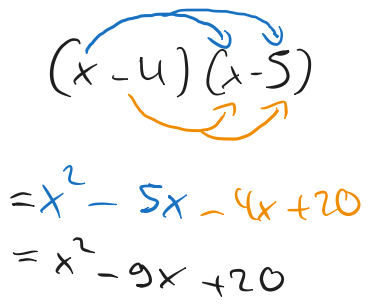 (x-4)(x-5)
=x² - 5x - 4x + 20
= x² - 9x + 20